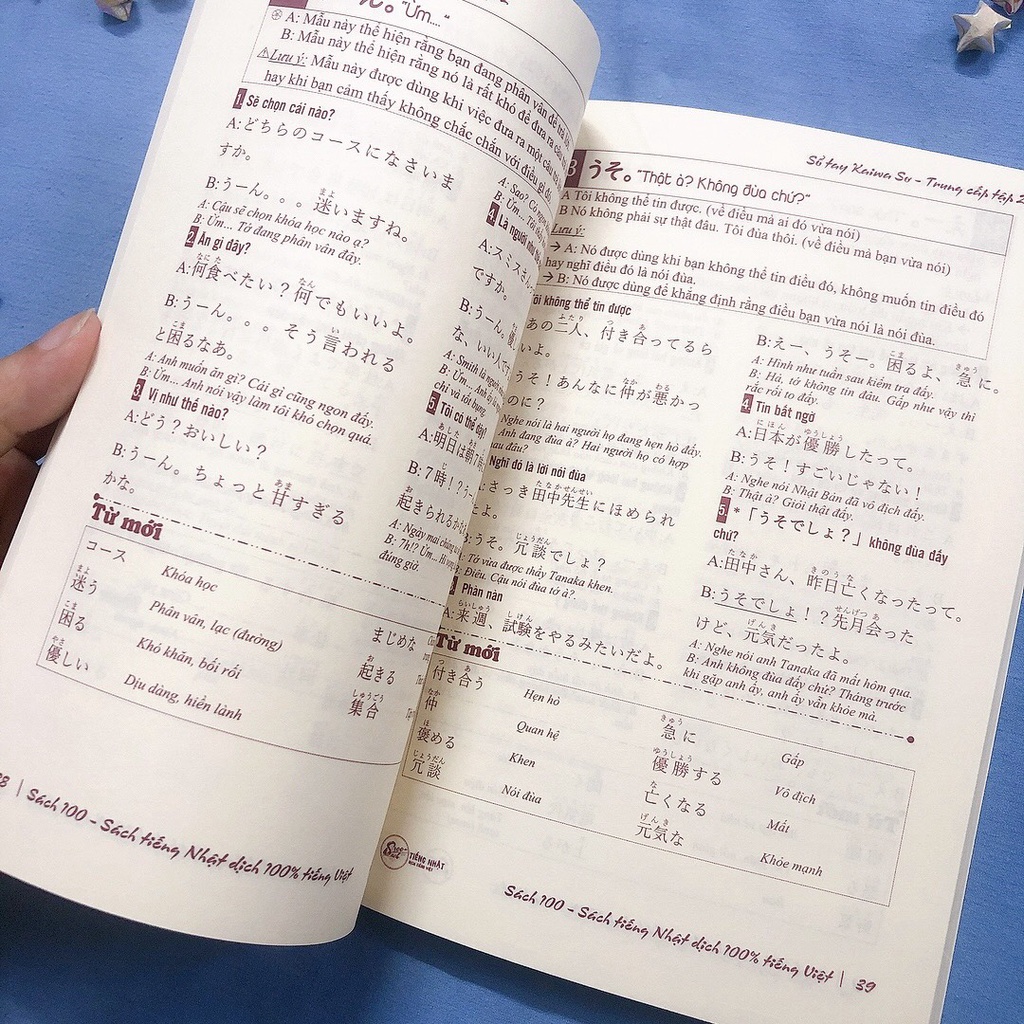 "Ừm...."
A: Mẫu này thể hiện rằng bạn đang phân vân để trả lời
B: Mẫu này thể hiện rằng nó là rất khó để đưa ra câu
Lưu ý: Mẫu này được dùng khi việc đưa ra một câu trả
hay khi bạn cảm thấy không chắc chắn với điều gì đó.
1 Sẽ chọn cái nào?
A:どちらのコースになさいま
すか。
B:うーん。。。迷いますね。
A: Cậu sẽ chọn khóa học nào ạ?
B: Ừm... Tớ đang phân vân đấy.
2 Ăn gì đây?
A:何食べたい？何でもいいよ。
B:うーん。。。そう言われる
と困るなあ。
A: Anh muốn ăn gì? Cái gì cũng ngon đấy.
B: Ừm... Anh nói vậy làm tôi khó chọn quá.
3 Vị như thế nào?
A:どう？おいしい？
B:うーん。ちょっと甘すぎる
かな。
4 Là người như
A:スミスさん
ですか。
B:うーん。優
な、いい人で
A: Smith là người
5 Tôi có thể dậy
A:明日は朝7時
B:7時！？うー
起きられるかな
A: Ngày mai chúng
đúng giờ.
Từ mới
コース Khóa học
迷う Phân vân, lạc (đường)
困る Khó khăn, bối rối
優しい Dịu dàng, hiền lành
まじめな
起きる
集合
38 | Sách 100 - Sách tiếng Nhật dịch 100% tiếng Việt
Sổ tay Kaiwa Sơ - Trung cấp tập 2
3 うそ。"Thật à? Không đùa chứ?"
A Tôi không thể tin được. (về điều mà ai đó vừa nói)
B Nó không phải sự thật đâu. Tôi đùa thôi. (về điều mà bạn vừa nói)
Lưu ý:
→ A: Nó được dùng khi bạn không thể tin điều đó, không muốn tin điều đó
hay nghĩ điều đó là nói đùa.
→ B: Nó được dùng để khẳng định rằng điều bạn vừa nói là nói đùa.
Tôi không thể tin được
あの二人、付き合ってるら
いよ。
うそ！あんなに仲が悪かっ
のに？
Nghe nói là hai người họ đang hẹn hò đấy.
Anh đang đùa à? Hai người họ có hợp
nhau đâu?
Nghĩ đó là lời nói đùa
さっき田中先生にほめられ
たよ。
うそ。冗談でしょ？
Tớ vừa được thầy Tanaka khen.
B: Điêu. Cậu nói đùa tớ à?
3 Phàn nàn
A:来週、試験をやるみたいだよ。
B:えー、うそー。困るよ、急に。
A: Hình như tuần sau kiểm tra đấy.
B: Hả, tớ không tin đâu. Gấp như vậy thì
rắc rối to đấy.
4 Tin bất ngờ
A:日本が優勝したって。
B:うそ！すごいじゃない！
A: Nghe nói Nhật Bản đã vô địch đấy.
B: Thật à? Giỏi thật đấy.
5 *「うそでしょ？」không đùa đấy
chứ?
A:田中さん、昨日亡くなったって。
B:うそでしょ！？先月会った
けど、元気だったよ。
A: Nghe nói anh Tanaka đã mất hôm qua.
B: Anh không đùa đấy chứ? Tháng trước
khi gặp anh ấy, anh ấy vẫn khỏe mà.
Từ mới
付き合う Hẹn hò
仲 Quan hệ
褒める Khen
冗談 Nói đùa
急に Gấp
優勝する Vô địch
亡くなる Mất
元気な Khỏe mạnh
TIẾNG NHẬT
Sách 100 - Sách tiếng Nhật dịch 100% tiếng Việt | 39